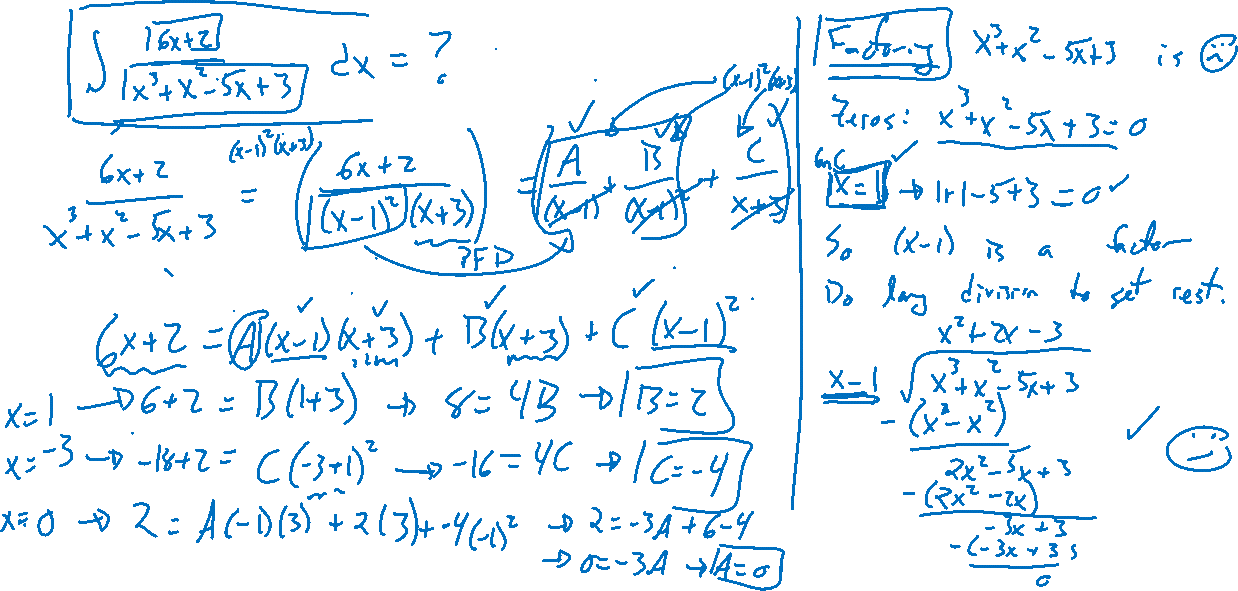 ∫ (6x+2)/(x³+x²-5x+3) dx = ?
(x-1)²(x+3)
(6x+2)/(x³+x²-5x+3) = ((6x+2)/((x-1)²(x+3))) = (A/(x-1) + B/(x-1)² + C/(x+3))
(x-1)²(x+3)
PFD
6x+2 = A(x-1)(x+3) + B(x+3) + C(x-1)²
x=1 → 6+2 = B(1+3) → 8=4B → B=2
x=-3 → -18+2 = C(-3+1)² → -16=4C → C=-4
x=0 → 2 = A(-1)(3) + 2(3) + -4(-1)² → 2=-3A+6-4
→ 0=-3A → A=0
Factoring x³+x²-5x+3 is ☹
Zeros: x³+x²-5x+3=0
x=1 ✓ → 1+1-5+3=0 ✓
So (x-1) is a factor
Do long division to get rest.
x²+2x-3
x-1 √ x³+x²-5x+3
-(x³-x²)
2x²-5x+3
-(2x²-2x)
-3x+3
-(-3x+3)
0
✓ ☺